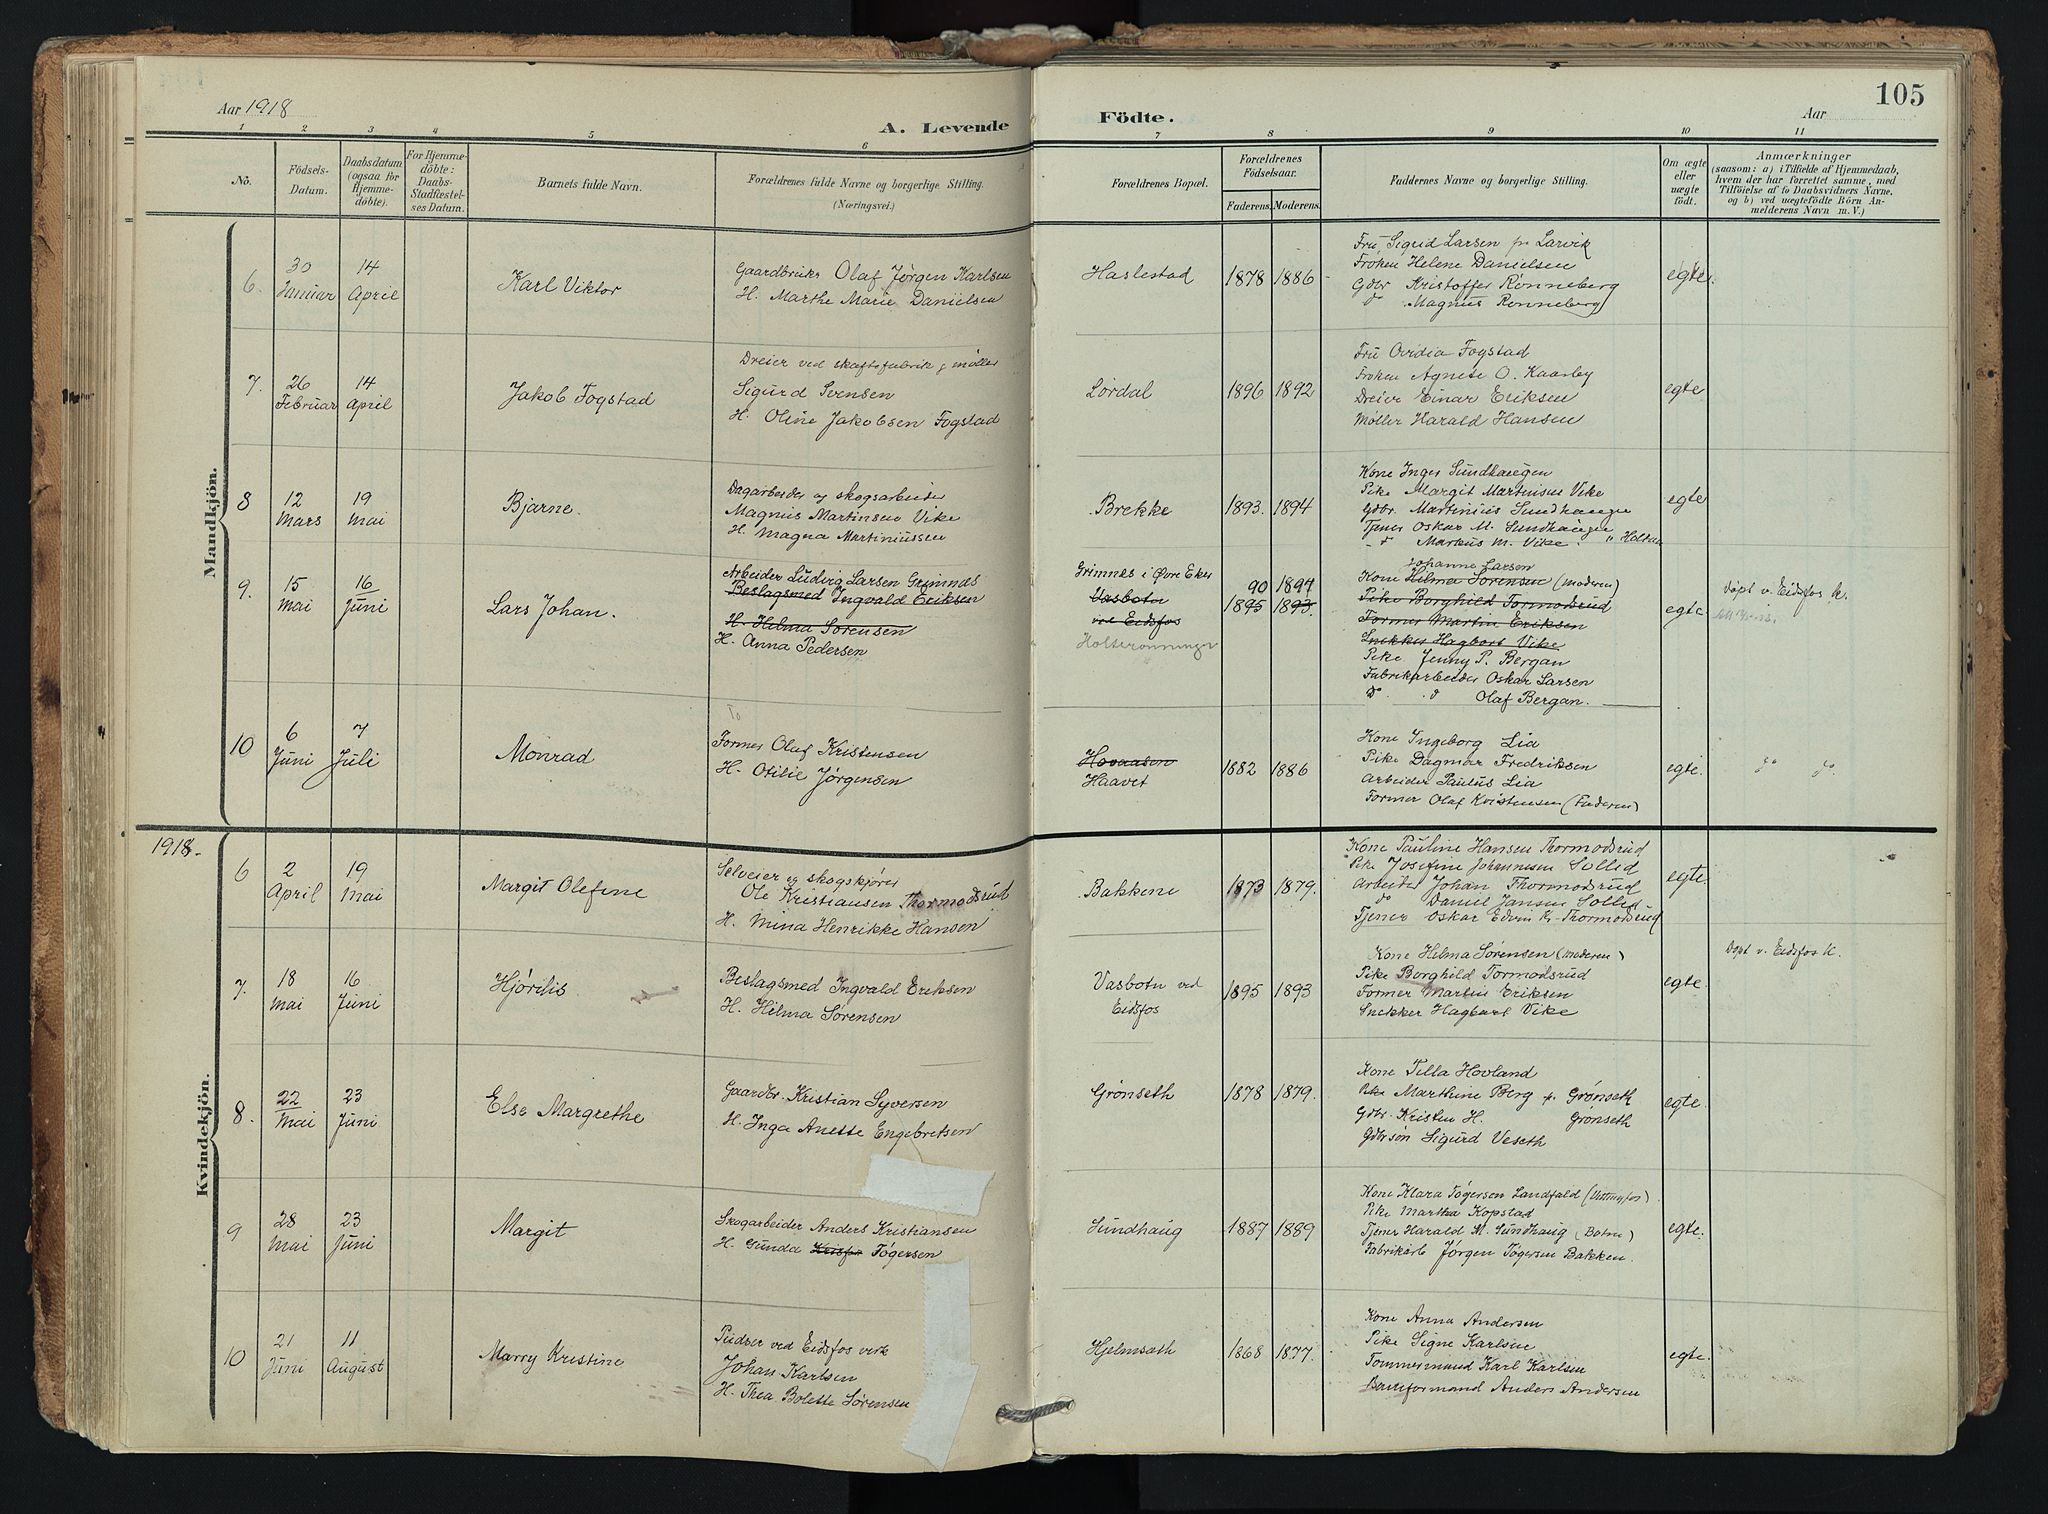 Aar 1918
A. Levende
Födte.
Aar
105
1 2 3 4 5 6 7 8 9 10 11
No.
Födsels-
Datum.
Daabsdatum
(ogsaa for
Hjemme-
döbte).
For Hjemme-
döbte:
Daabs-
Stadfæstel-
ses Datum.
Barnets fulde Navn.
Forældrenes fulde Navne og borgerlige Stilling.
(Næringsvei.)
Forældrenes Bopæl.
Forældrenes
Födselsaar.
Faderens. Moderens.
Faddernes Navne og borgerlige Stilling.
Om ægte
eller
uægte
födt.
Anmærkninger
(saasom: a) i Tilfælde af Hjemmedaab,
hvem der har forrettet samme, med
Tilföielse af to Daabsvidners Navne.
og b) ved uægtefödte Börn An-
melderens Navn m. V.)
Mandkjön.
6.
30
Januar
14
April
Karl Viktor
Gaardbruker Olaf Jørgen Karlsen
H. Marthe Marie Danielsen
Haslestad
1878 1886
Fru Sigrid Larsen fra Larvik
Frøken Helene Danielsen
Gdbr Kristoffer Rønneberg
do Magnus Rønneberg
egte.
7.
26
Februar
14
April
Jakob Fogstad
Dreier ved skaftefabrik og møller
Sigurd Svensen
H. Oline Jakobsen Fogstad
Lørdal
1896 1892
Fru Ovidia Fogstad
Frøken Agnete O. Kaarby
Dreier Einar Eriksen
Møller Harald Hansen
egte
8
12
Mars
19
Mai
Bjarne.
Dagarbeider og skogsarbeider
Magnus Martinsen Vike
H. Magna Martiniussen
Brekke
1893. 1894
Kone Inger Sundhaugen
Pike Margit Martinsen Vike
Gdbr. Martinius Sundhaugen
Tjener Oskar M. Sundhaugen
do Markus M. Vike. " Holtan
egte
9.
15
Mai
16
Juni
Lars Johan.
Arbeider Ludvig Larsen Grimnes
Beslagsmed Ingvald Eriksen
H. Helma Sørensen
H. Anna Pedersen
Grimnes i Øvre Eker
Vasbotn
ved Eidsfos
Holterønningen
90 1894
1895 1893.
Johanne Larsen
Kone Helma Sørensen (moderen)
Pike Borghild Tormodsrud
Former Martin Eriksen
Snekker Hagbart Vike
Pike Jenny P. Bergan
Fabrikarbeider Oskar Larsen
do do Olaf Bergan.
egte
Døpt v. Eidsfos k.
10
6
Juni
7
Juli
Monrad
Former Olaf Kristensen
H. Otilie Jørgensen
Hovaasen
Haavet
1882 1886
Kone Ingeborg Lia
Pike Dagmar Fredriksen
Arbeider Paulus Lia
Former Olaf Kristensen (Faderen)
egte.
do do.
1918.
Kvindekjön.
6
2
April
19
Mai
Margit Olefine
Selveier og skogskjører
Ole Kristiansen Thormodsrud
H. Mina Henrikke Hansen
Bakkene
1873 1879.
Kone Pauline Hansen Thormodsrud
Pike Josefine Johannesen Sollid
Arbeider Johan Thormodsrud
do Daniel Jansen Sollid
Tjener Oskar Edvin K. Thormodsrud
egte.
7.
18
Mai
16
Juni
Hjørdis
Beslagsmed Ingvald Eriksen
H. Helma Sørensen
Vasbotn ved
Eidsfos
1895 1893
Kone Helma Sørensen (Moderen)
Pike Borghild Tormodsrud
Former Martin Eriksen
Snekker Hagbart Vike
egte.
Døpt v. Eidsfos K.
8.
22
Mai
23
Juni
Else Margrethe
Gaardbr. Kristian Syversen
H. Inga Anette Engebretsen
Grønseth
1878 1879.
Kone Tilla Hovland
Pike Marthine Berg p. Grønseth
Gdbr. Kristen H. Grønseth
Gdbrsøn Sigurd Veseth
egte.
9
28
Mai
23
Juni
Margit
Skogarbeider Anders Kristiansen
H. Gunda Tøgersen
Sundhaug
1887 1889
Kone Klara Tøgersen Landfald (Vittingfos).
Pike Martha Kopstad
Tjener Harald M. Sundhaug (Botne)
Fabrikarb Jørgen Tøgersen Bakken.
egte.
10
21
Juni
11
August
Marry Kristine
Pudser ved Eidsfos verk
Johan Karlsen
H. Thea Bolette Sørensen
Hjelmsæth
1868 1877.
Kone Anna Andersen
Pike Signe Karlsen
Tømmermand Karl Karlsen
Baneformand Anders Andersen
egte.